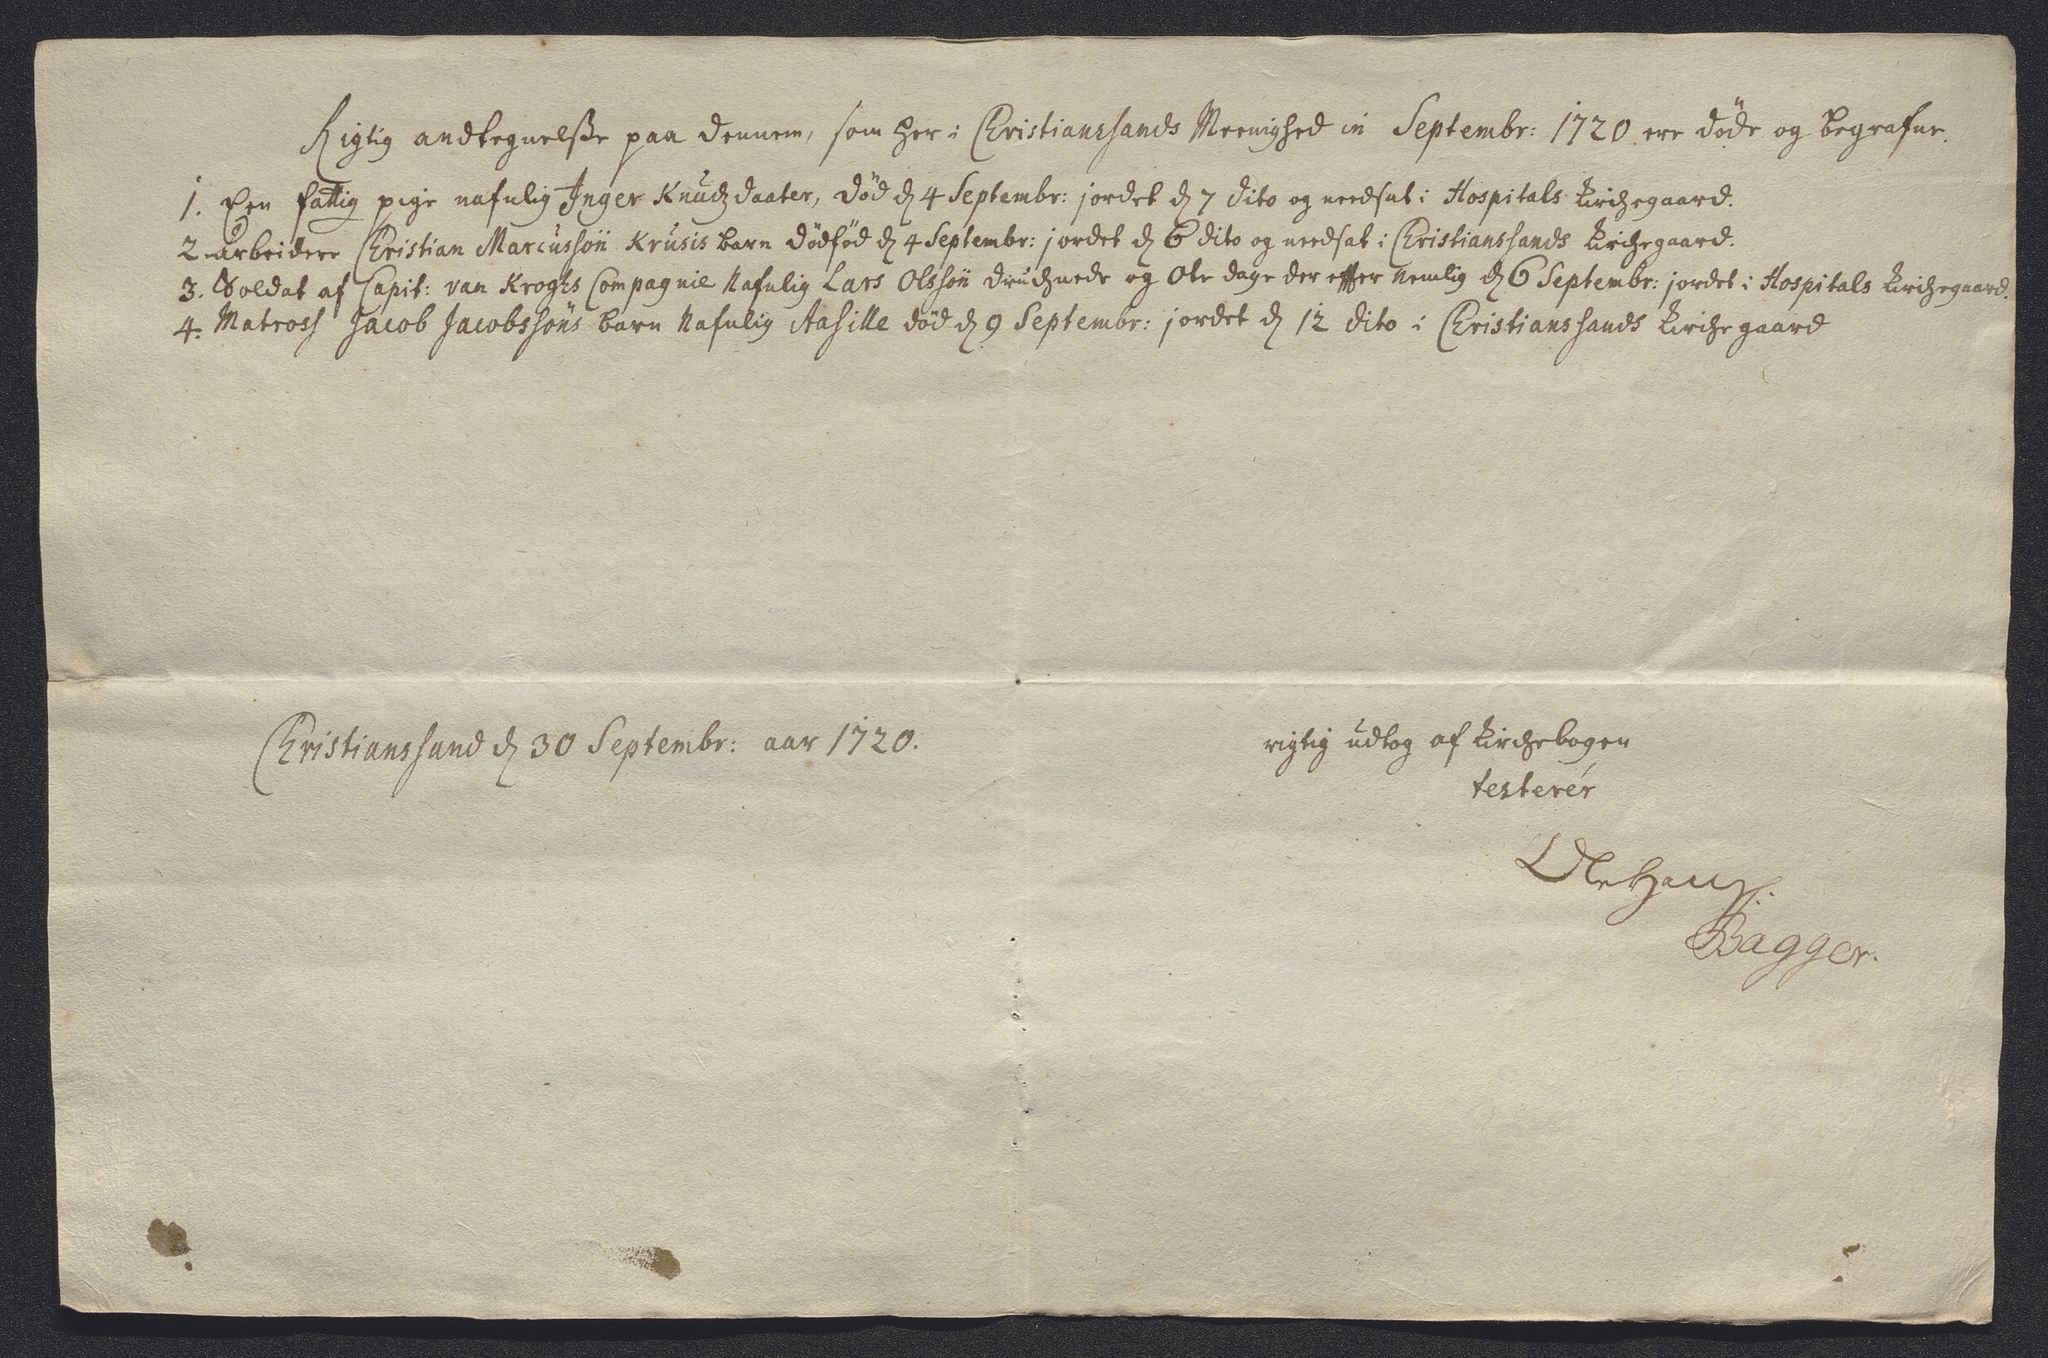 Rigtig andtegnelsse paa dennem, som her i Christianssands Meenighed in Septembr: 1720 ere døde og begrafne.
1. Een fattig pige nafnlig Inger Knudzdaater, død d 4 Septembr: jordet d 7 dito og needsat i Hospitals Kirchegaard.
2. Arbeidere Christian Marcussøn Krusis barn dødfød d 4 Septembr: jordet d 6 dito og needsat i Christianssands Kirchegaard.
3. Soldat af Capit: van Kroghs Compagnie Nafnlig Lars Olssøn druchnede og Ote dage der effter Nemlig d 6 Septembr: jordet i Hospitals Kirchegaard.
4. Matross Jacob Jacobssøns barn Nafnlig Aasille død d 9 Septembr: jordet d 12 dito i Christianssands Kirchegaard
Christianssand d 30 Septembr: aar 1720.
rigtig udtog af Kirchebogen
testerer
Ole Hanss:
Bagger.